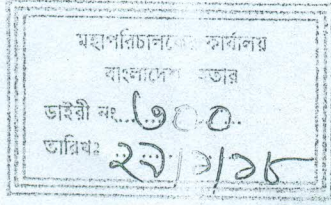 মহাপরিচালকের কার্যালয়
বাংলাদেশ বেতার
ডাইরী নং...৩৫০...
তারিখঃ ...২১/১/১৮